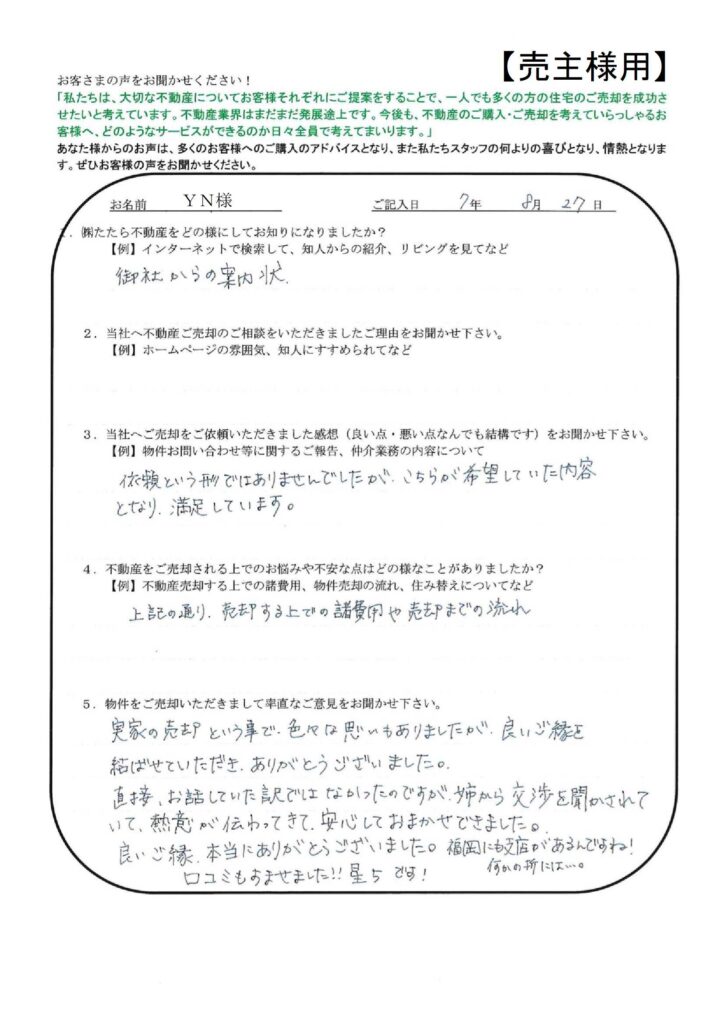 【売主様用】
お客さまの声をお聞かせください！
「私たちは、大切な不動産についてお客様それぞれにご提案をすることで、一人でも多くの方の住宅のご売却を成功さ
せたいと考えています。不動産業界はまだまだ発展途上です。今後も、不動産のご購入・ご売却を考えていらっしゃるお
客様へ、どのようなサービスができるのか日々全員で考えてまいります。」
あなた様からのお声は、多くのお客様へのご購入のアドバイスとなり、また私たちスタッフの何よりの喜びとなり、情熱となりま
す。ぜひお客様の声をお聞かせください。
お名前 YN様 ご記入日 7年 8月 27日
1．㈱たたら不動産をどの様にしてお知りになりましたか？
【例】インターネットで検索して、知人からの紹介、リビングを見てなど
御社からの案内状.
2．当社へ不動産ご売却のご相談をいただきましたご理由をお聞かせ下さい。
【例】ホームページの雰囲気、知人にすすめられてなど
3．当社へご売却をご依頼いただきました感想（良い点・悪い点なんでも結構です）をお聞かせ下さい。
【例】物件お問い合わせ等に関するご報告、仲介業務の内容について
依頼という形ではありませんでしたが、こちらが希望していた内容
となり、満足しています。
4．不動産をご売却される上でのお悩みや不安な点はどの様なことがありましたか？
【例】不動産売却する上での諸費用、物件売却の流れ、住み替えについてなど
上記の通り、売却する上での諸費用や売却までの流れ
5．物件をご売却いただきまして率直なご意見をお聞かせ下さい。
実家の売却という事で、色々な思いもありましたが、良いご縁を
結ばせていただき、ありがとうございました。
直接、お話していた訳ではなかったのですが、姉から交渉を聞かされて
いて、熱意が伝わってきて、安心しておまかせできました。
良いご縁、本当にありがとうございました。福岡にも支店があるんですね！
何かの折には…。
口コミもすませました!!星5です！